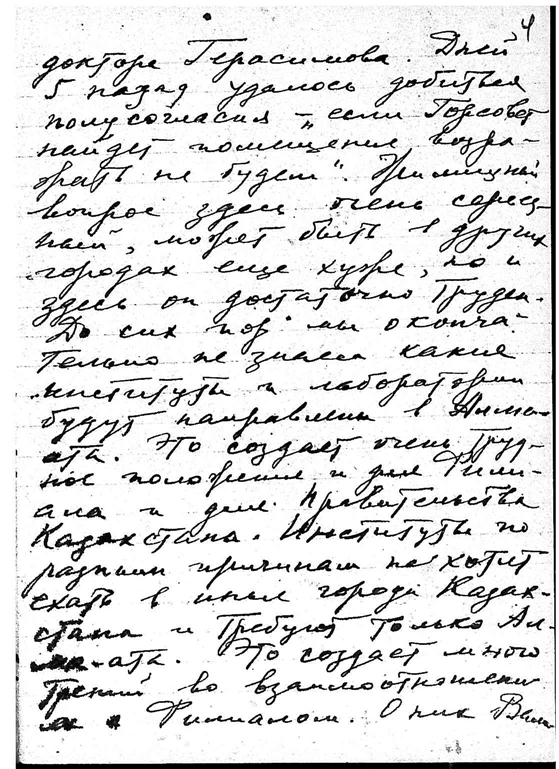 4
доктора Герасимова. Дней
5 назад удалось добиться
полусогласия – "если Горсовет
найдет помещение возра-
жать не будем". Жилищный
вопрос здесь очень серьез-
ный, может быть в других
городах еще хуже, но и
здесь он достаточно труден.
До сих пор мы оконча-
тельно не знаем какие
институты и лаборатории
будут направлены в Алма-
ата. Это создает очень труд-
ное положение и для Фили-
ала и для Правительства
Казахстана. Институты по
разным причинам не хотят
ехать в иные города Казах-
стана и требуют только Ал-
ма-ата. Это создает много
трений во взаимоотношени-
ях с Филиалом. О них Вам